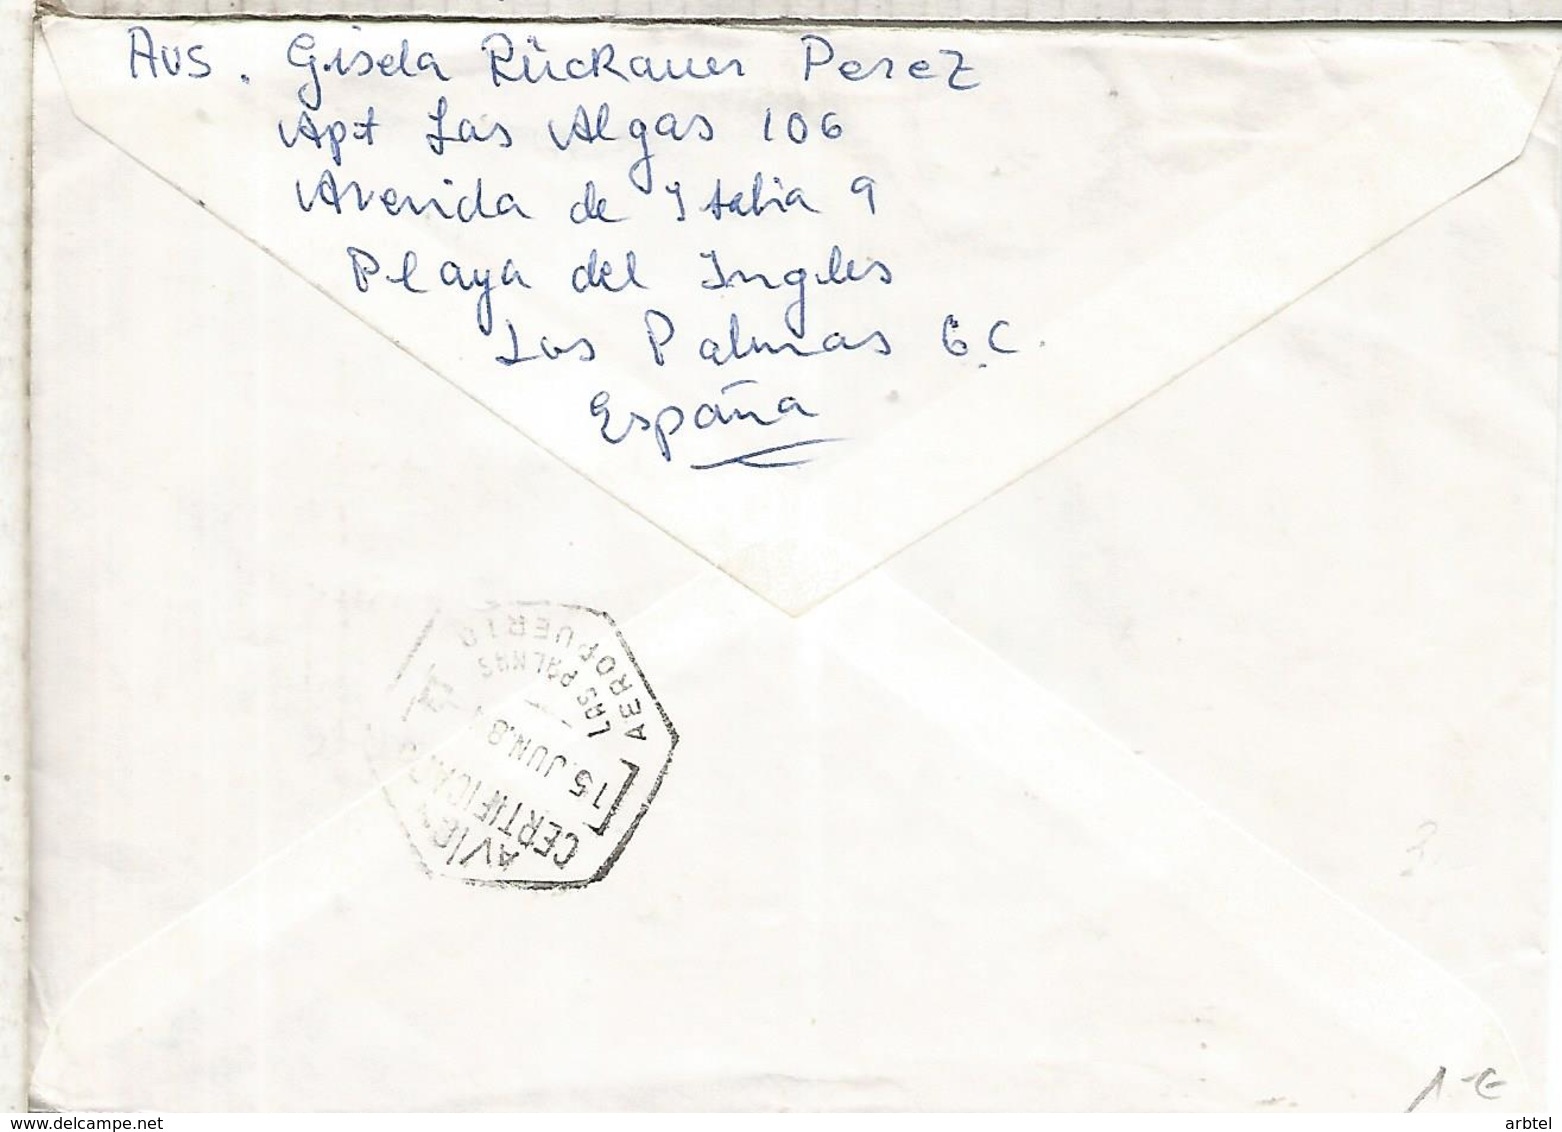 Aus. Gisela Rückauer Perez
Apt Las Algas 106
Avenida de Italia 9
Playa del Ingles
Las Palmas G.C.
España
AEROPUERTO
LAS PALMAS
15.JUN.8
CERTIFICADO
1-€
delcampe.net
arbtel